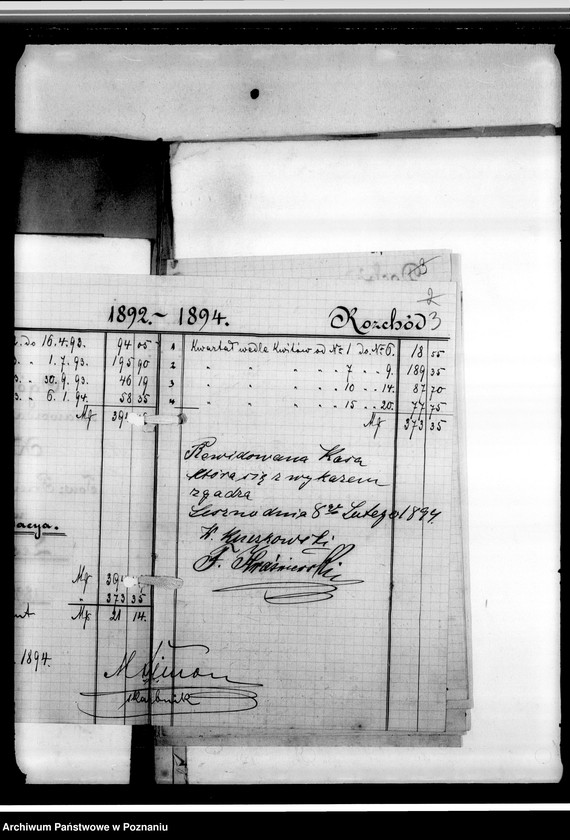 2
1892.- 1894. Rozchód 3
do 16.4.93. 94 05
1.7.93. 195 90
30.9.93. 46 19
6.1.94. 58 35
Mk 39
1 Kwartał wedle Kwitów od No. 1 do No. 6. 18 55
2 " " " " " 7 " 9. 189 35
3 " " " " " 10 " 14. 87 70
4 " " " " " 15 " 20. 77 75
Mk 373 35
Rewidowana Kasa
która się z wykazem
zgadza
Leszno dnia 8go Lutego 1894.
acya.
Mk 39
" 373 35
Mk 21 14.
1894.
skarbnik
Archiwum Państwowe w Poznaniu